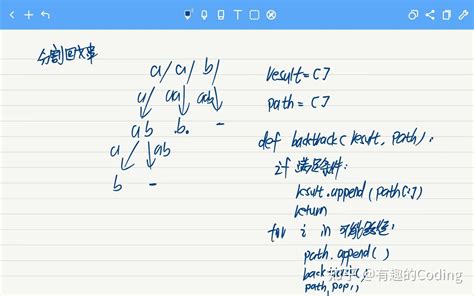 分割回文串
a/ a/ b/
a/ aa/ aab
a b b. -
a ab
b -
result = []
path = []
def backtrack(result, path):
if 满足条件:
result.append(path[:])
return
for i in 可能选择:
path.append()
backtrack()
path.pop()
知乎 @有趣的Coding